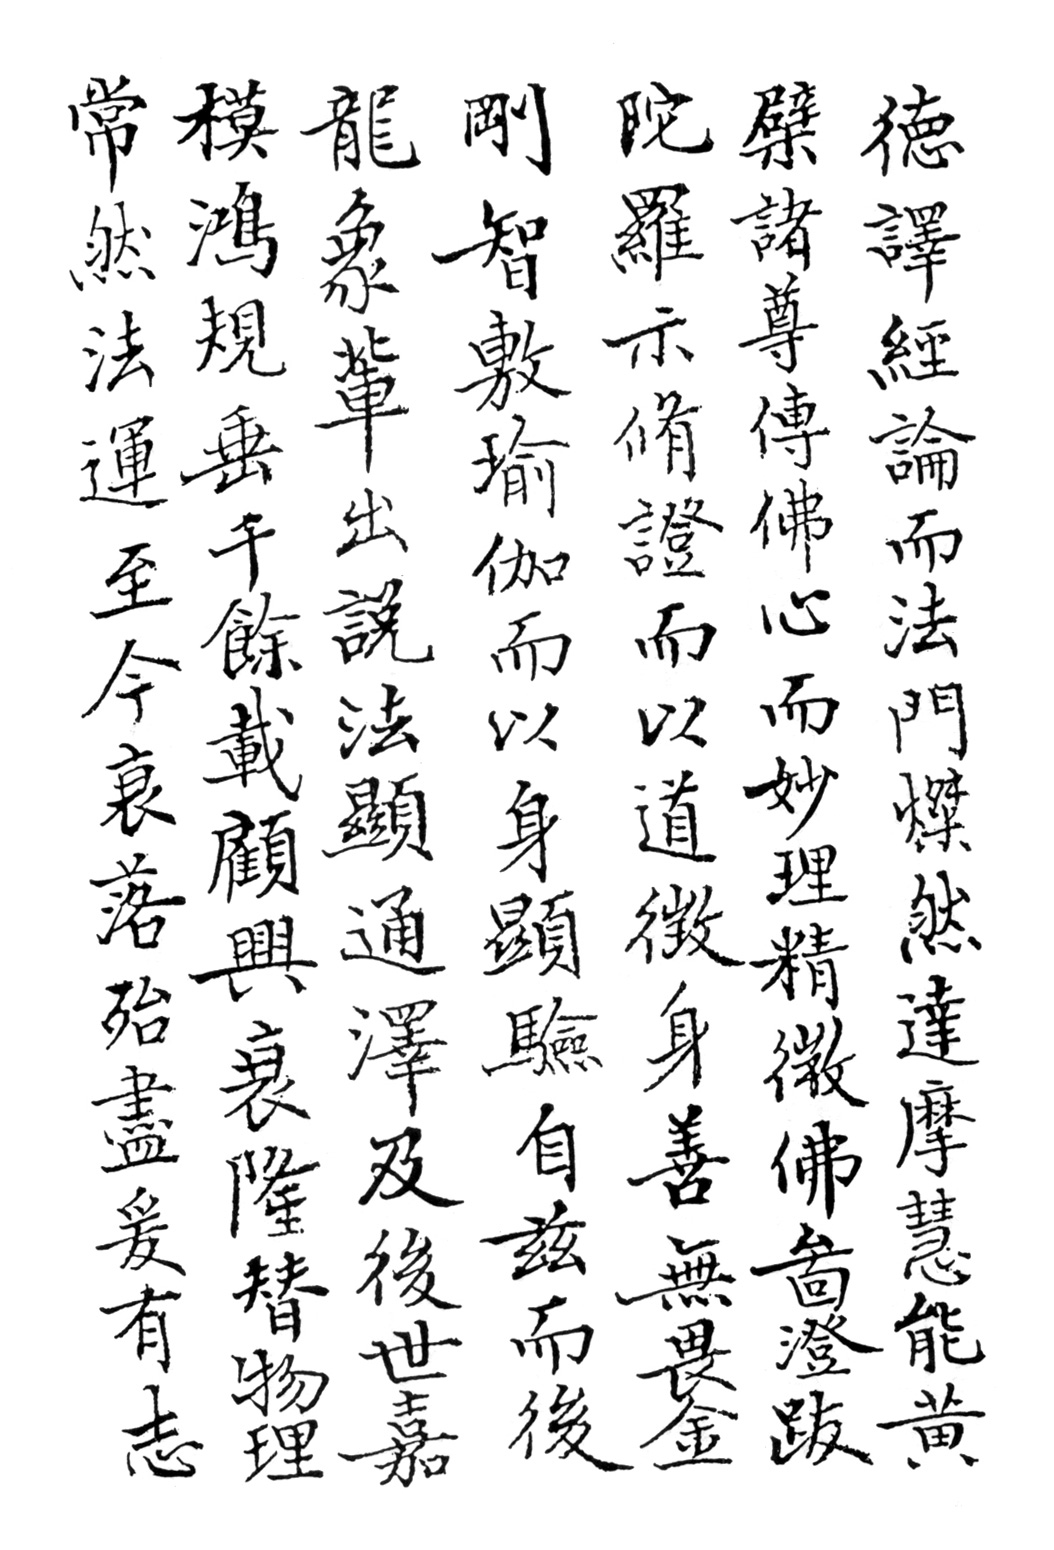 德譯經論而法門燦然達摩慧能黃
檗諸尊傳佛心而妙理精微佛啚澄跋
陀羅示脩證而以道徵身善無畏金
剛智敷瑜伽而以身顯驗自茲而後
龍象輩出説法顯通澤及後世嘉
模鴻規垂千餘載顧興衰隆替物理
常然法運至今衰落殆盡爰有志